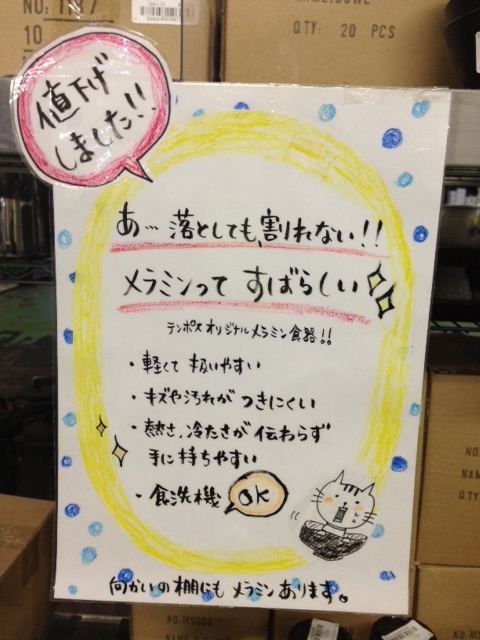 NO: 1
10
QTY: 20 PCS
値下げ
しました!!
あ… 落としても、割れない!!
メラミンって すばらしい
テンポスオリジナルメラミン食器!!
・軽くて 扱いやすい
・キズや汚れが つきにくい
・熱さ、冷たさが 伝わらず
手に持ちやすい
・食洗機 OK
向かいの棚にも メラミンあります。